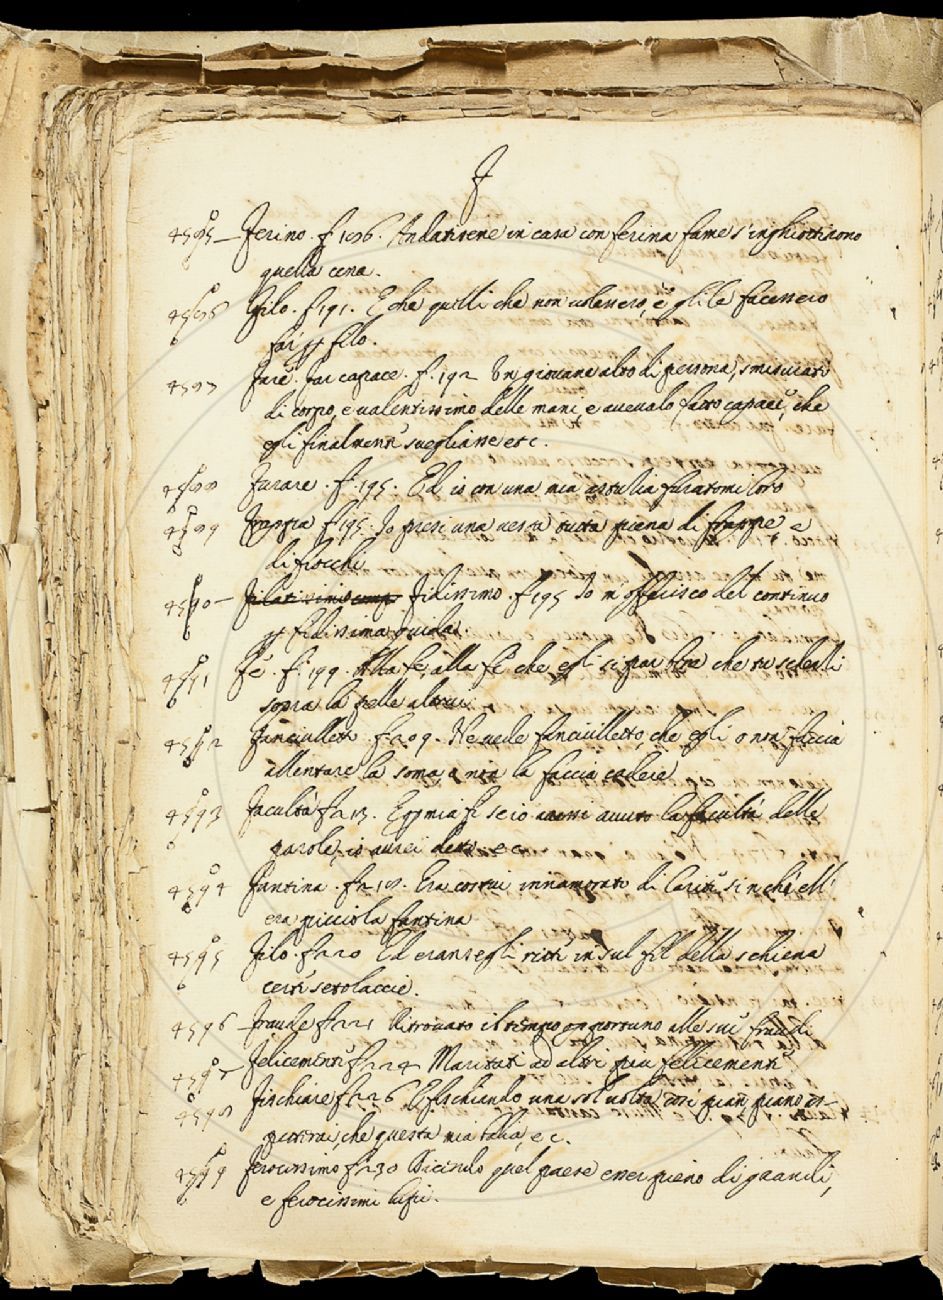 F
Ferino. f 186. Andatisene in casa con ferina fame s'inghiottirono
quella cena.
Filo. f 191. E che quelli che non volessero, e gli le facessero
far per filo.
Fare. far capace. f. 192 Un giovane alto di persona, smisurati
di corpo, e valentissimo delle mani, e avevalo fatto capace, che
egli finalmente svegliasse etc.
Furare. f. 195. Ed io con una mia astuzia furatomi loro
Frappa f 195. Io presi una vesta tutta piena di frappe e
di fiocchi
Fidissimo. f 195 Io m'offerisco del continuo
per fidissima guida.
Fè. f. 199. Alla fe, alla fè che egli si par bene che tu
sopra la pelle altrui.
Fanciulletto. f 209. Ne vede fanciulletto, che egli o non faccia
allentare la soma o non la faccia cadere
Facultà f 213. E per mia fè se io avessi avuto la facultà delle
parole, io avrei detto ec.
Fantina. f 218. Era costui innamorato di sin che ell'
era picciola fantina
Filo. f 220 Ed eransegli ritti in sul fil della schiena
certe setolaccie.
Fraude f 221 Ritrovato il tempo opportuno alle sue fraudi
Felicemente f 224 Maritati ad altri più felicemente
Fischiare f 226 E fischiando una sol volta così pian piano as-
petterai che questa mia ec.
Ferocissimo f 230 Dicendo quel paese esser pieno di grandi,
e ferocissimi lupi.